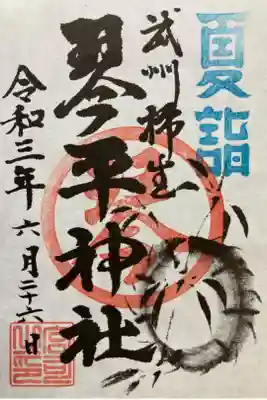 夏詣
武州柿生
琴平神社
令和三年六月二十六日